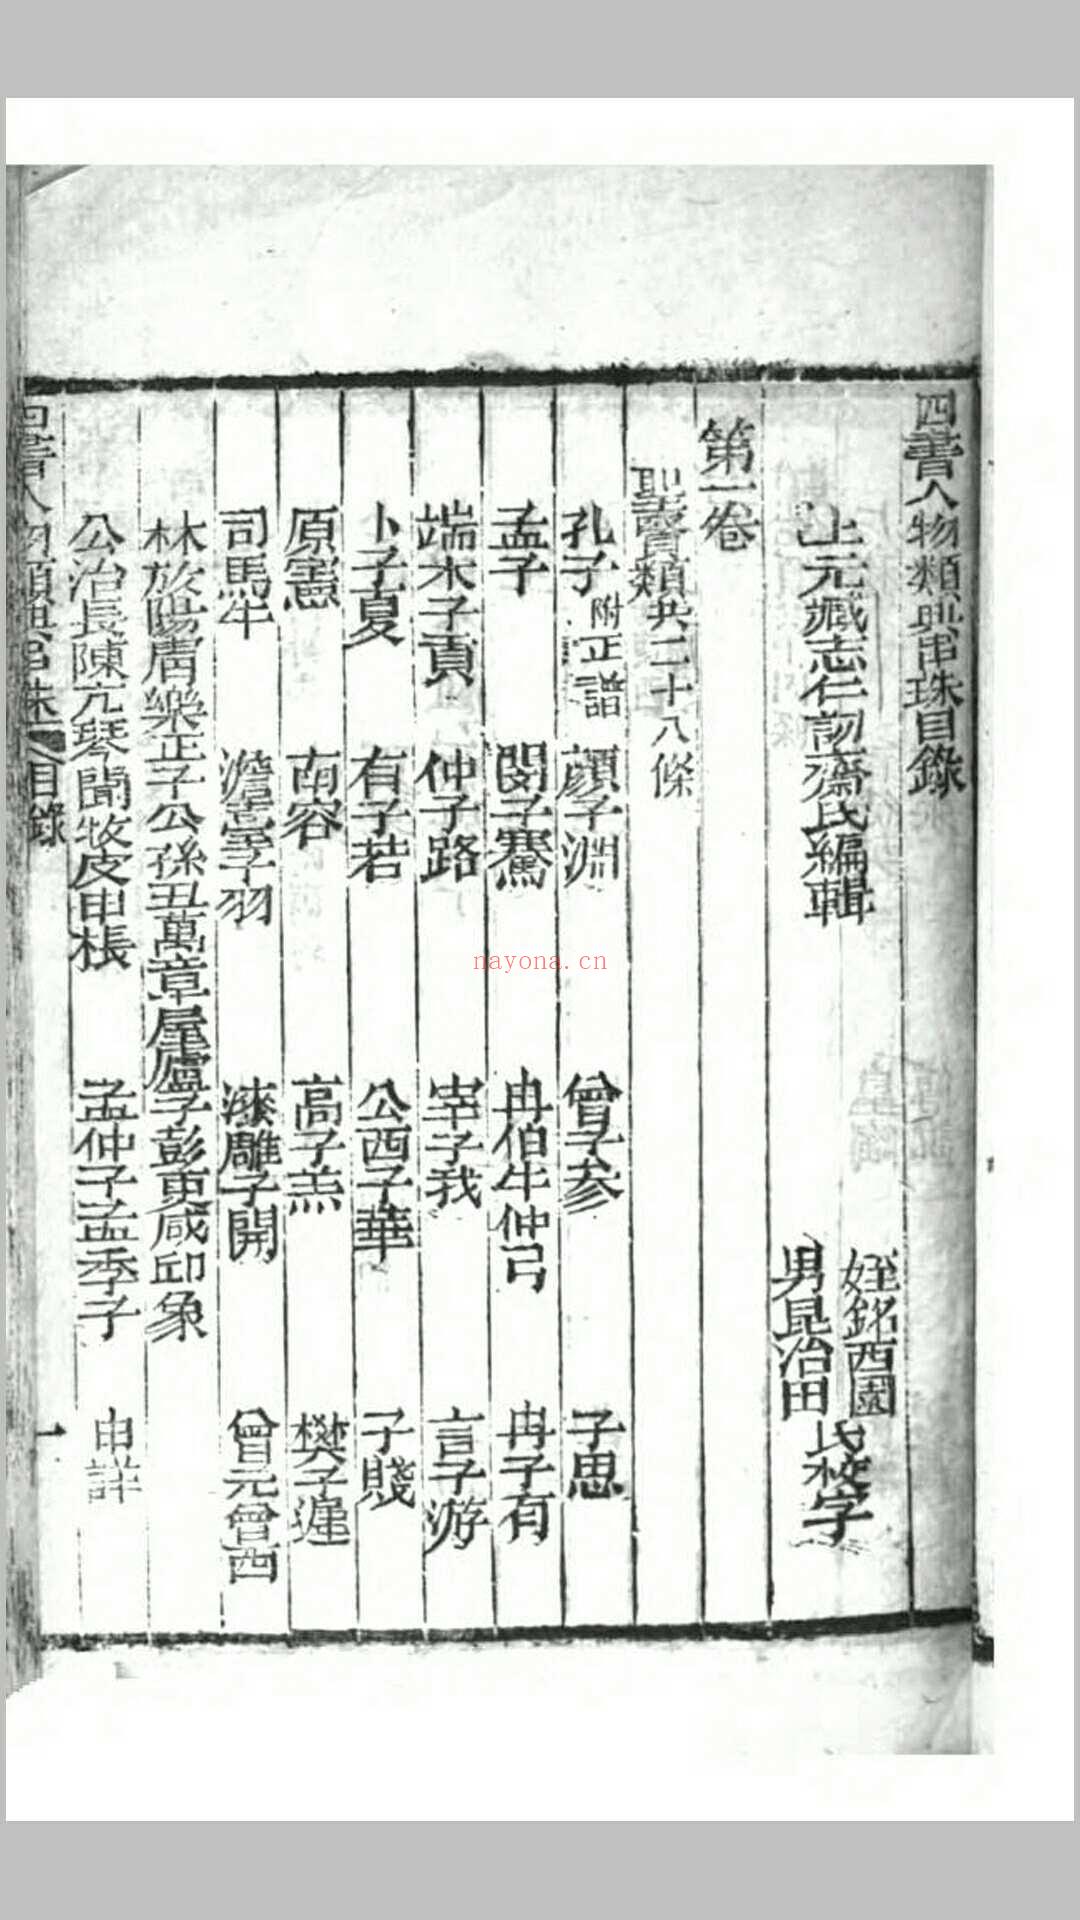 四書人物類典串珠目錄
上元臧志仁訒齋氏編輯
姪銘西園
男昆治田
氏校字
第一卷
聖賢類共二十八條
孔子附正譜 顏子淵 曾子參 子思
孟子 閔子騫 冉伯牛仲弓 冉子有
端木子貢 仲子路 宰子我 言子游
卜子夏 有子若 公西子華 子賤
原憲 南容 高子羔 樊子遲
司馬牛 澹臺子羽 漆雕子開 曾元曾西
林放陽膚樂正子公孫丑萬章屋廬子彭更咸邱 象
公冶長陳亢琴聞牧皮申棖 孟仲子孟季子 申詳
四書人物類典串珠 目錄 一
nayona.cn